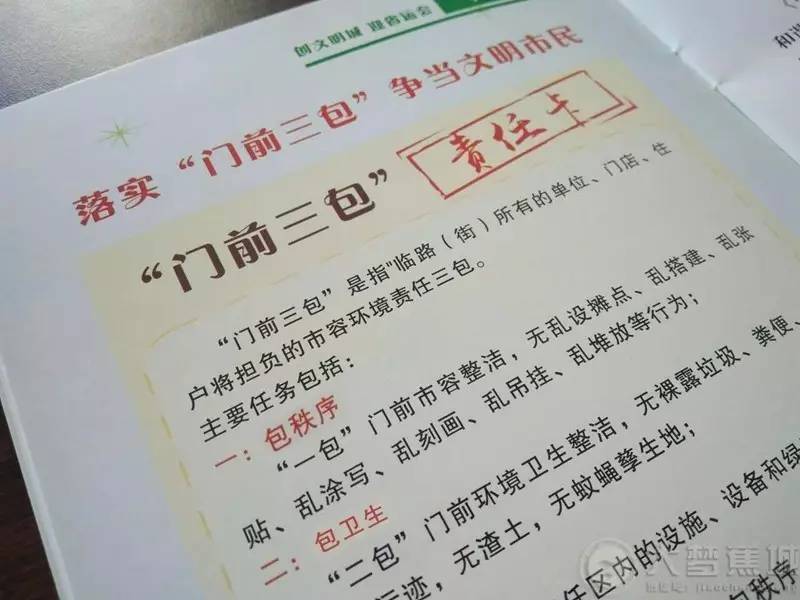 创文明城 迎省运会
落实“门前三包”争当文明市民
“门前三包”
责任卡
“门前三包”是指“临路（街）所有的单位、门店、住
户将担负的市容环境责任三包。
主要任务包括：
一：包秩序
“一包”门前市容整洁，无乱设摊点、乱搭建、乱张
贴、乱涂写、乱刻画、乱吊挂、乱堆放等行为；
二：包卫生
“二包”门前环境卫生整洁，无裸露垃圾、粪便、
污迹，无渣土，无蚊蝇孳生地；
任区内的设施、设备和绿
包秩序
和谐
大梦蕉城